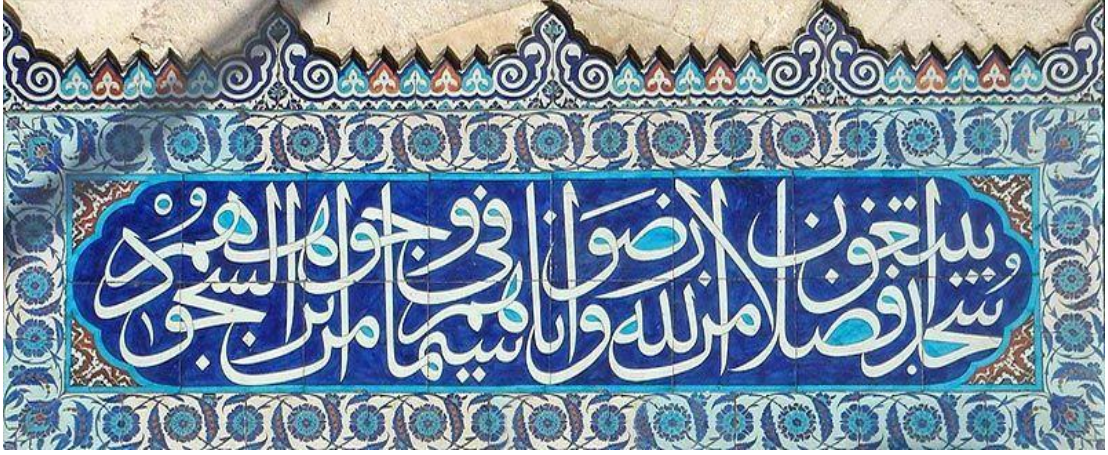 سُجدا يبتغون فضلا من الله ورضوانا سيماهم فى وجوههم من اثر السجود